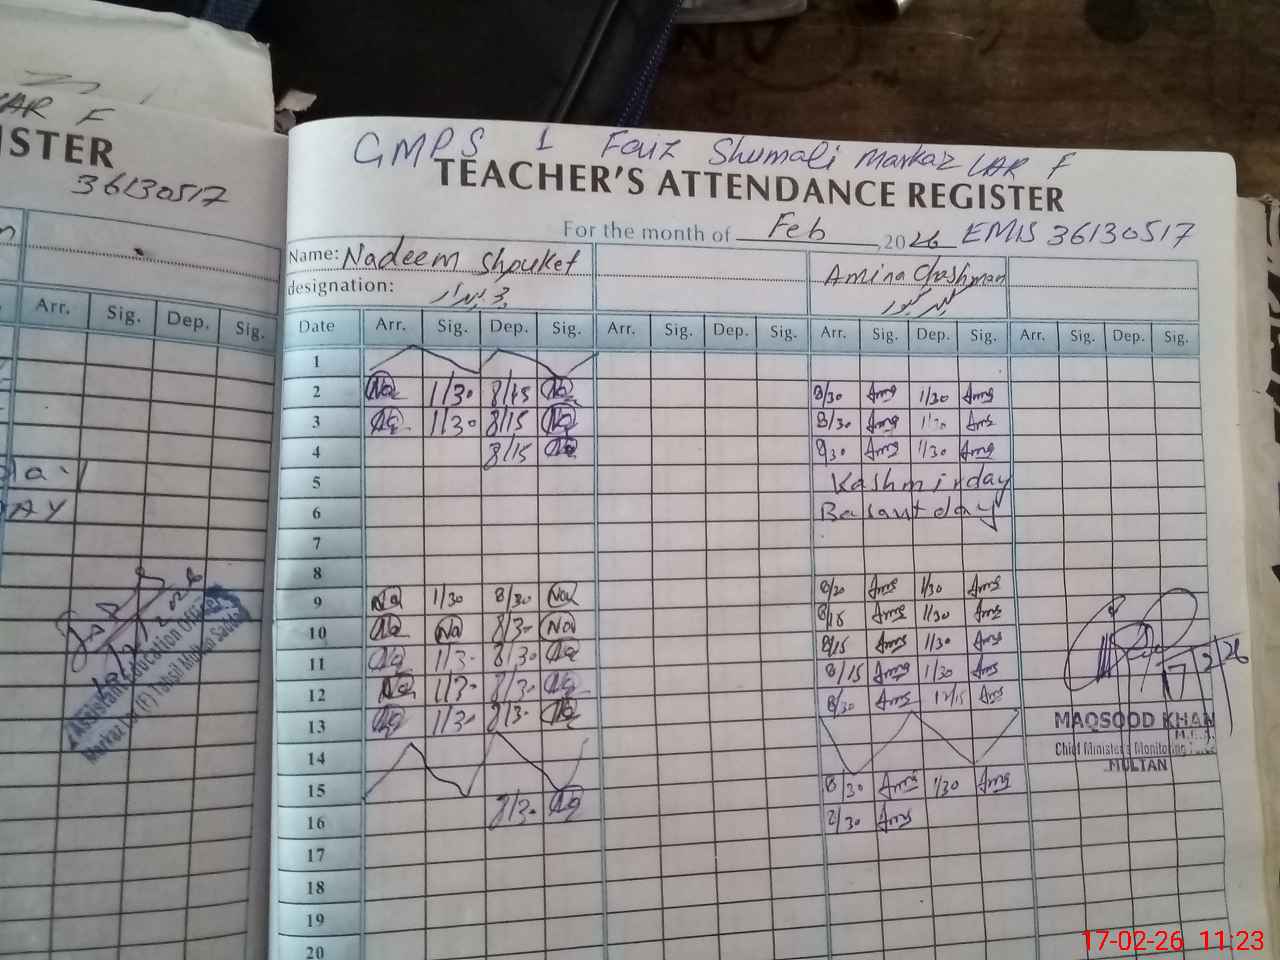 AR F
ISTER
36130517
Arr. Sig. Dep. Sig.
Day
DAY
Assistant Education Officer
Markaz (F) Tehsil Multan Saddar
GMPS 1 Faiz Shumali Markaz LAR F
TEACHER'S ATTENDANCE REGISTER
For the month of Feb 2026 EMIS 36130517
Name: Nadeem Shouket Amina Chashman
designation:
Date Arr. Sig. Dep. Sig. Arr. Sig. Dep. Sig. Arr. Sig. Dep. Sig. Arr. Sig. Dep. Sig.
1
2 Na 1/30 8/15 Na 8/30 Amg 1/30 Amg
3 Na 1/30 8/15 Na 8/30 Amg 1/30 Amg
4 8/15 Na 8/30 Amg 1/30 Amg
5 Kashmir day
6 Basant day
7
8
9 Na 1/30 8/30 Na 8/20 Amg 1/30 Amg
10 Na Na 8/3- Na 8/15 Amg 1/30 Amg
11 Na 1/3- 8/30 Na 8/15 Amg 1/30 Amg
12 Na 1/3- 8/30 Na 8/15 Amg 1/30 Amg
13 Na 1/3- 8/3- Na 8/30 Amg 12/15 Amg
14
15 8/30 Amg 1/30 Amg
16 8/3- Na 8/30 Amg
17
18
19
20
17/2/26
MAQSOOD KHAN
M.E.A.
Chief Minister's Monitoring Force
MULTAN
17-02-26 11:23